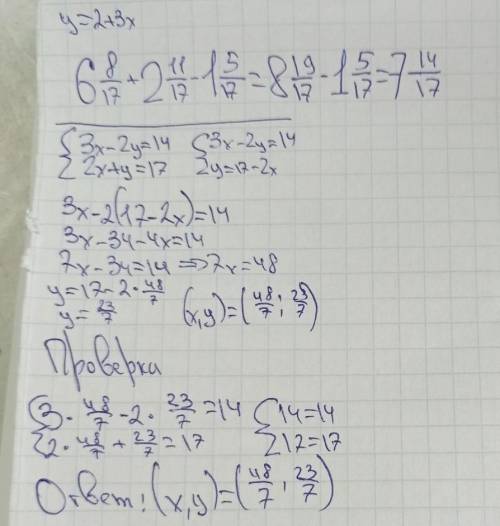 y=2+3x
6 8/17 + 2 11/17 - 1 5/17 = 8 19/17 - 1 5/17 = 7 14/17
{3x-2y=14 {3x-2y=14
{2x+y=17 {2y=17-2x
3x-2(17-2x)=14
3x-34-4x=14
7x-34=14 => 7x=48
y=17-2·48/7
y=23/7 (x,y)=(48/7; 23/7)
Проверка
{3·48/7-2·23/7=14 {14=14
{2·48/7+23/7=17 {17=17
Ответ: (x,y)=(48/7; 23/7)